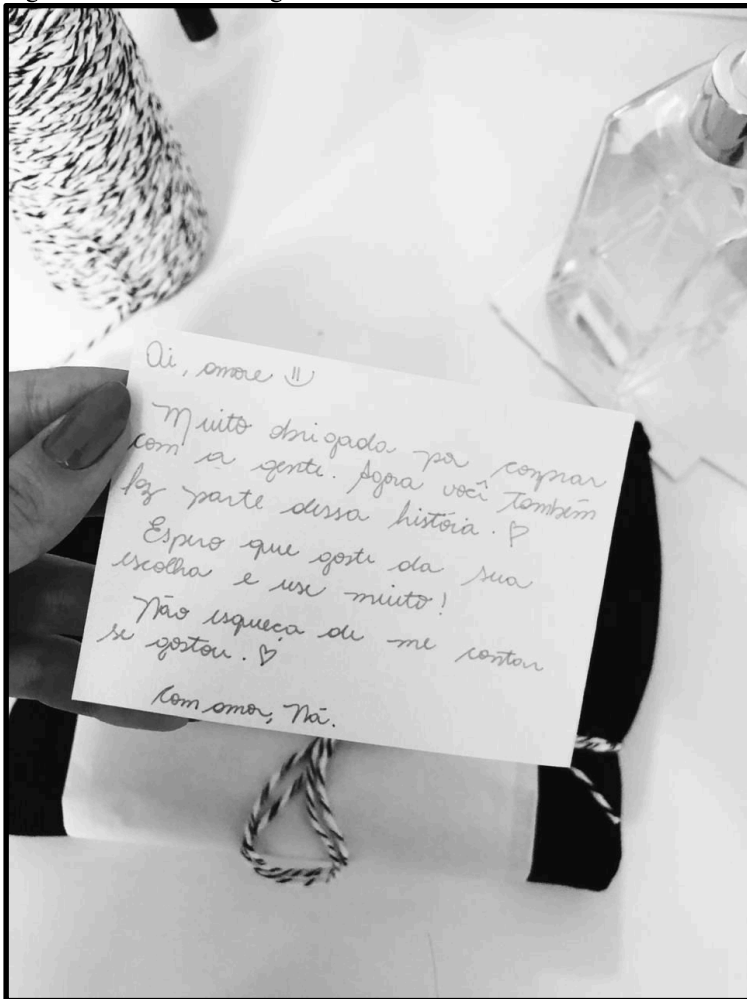 Oi, amore
Muito obrigada por comprar
com a gente. Agora você também
faz parte dessa história. ♡
Espero que goste da sua
escolha e use muito!
Não esqueça de me contar
se gostou. ♡
Com amor, Ná.